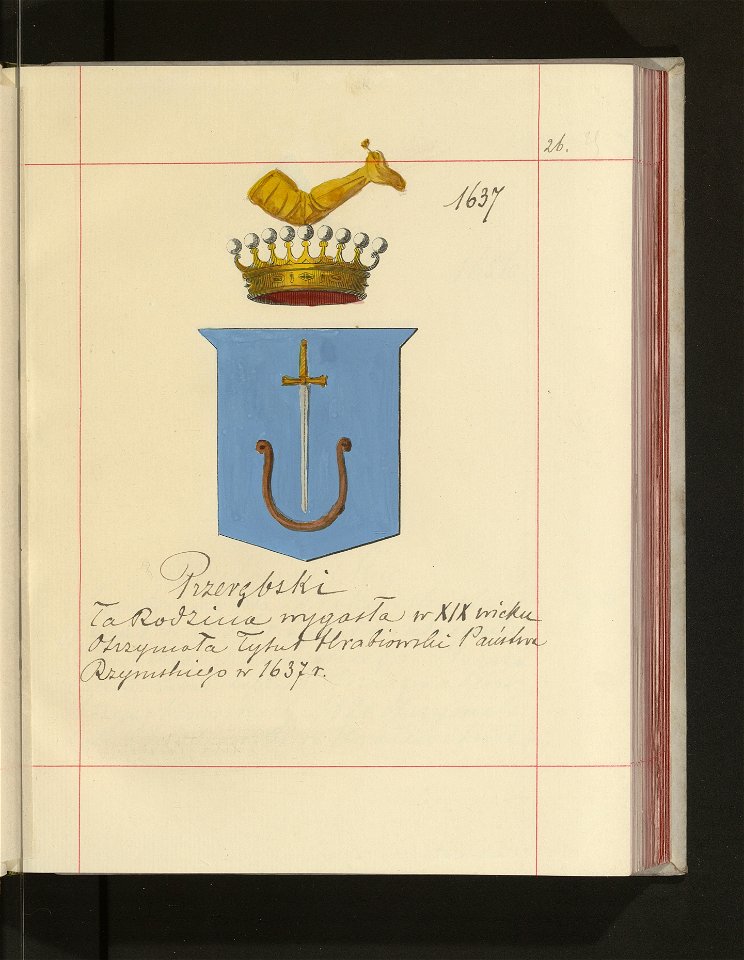 26.
1637
Przerębski
ta Rodzina wygasła w XIX wieku
Otrzymała Tytuł Hrabiowski Państwa
Rzymskiego w 1637 r.